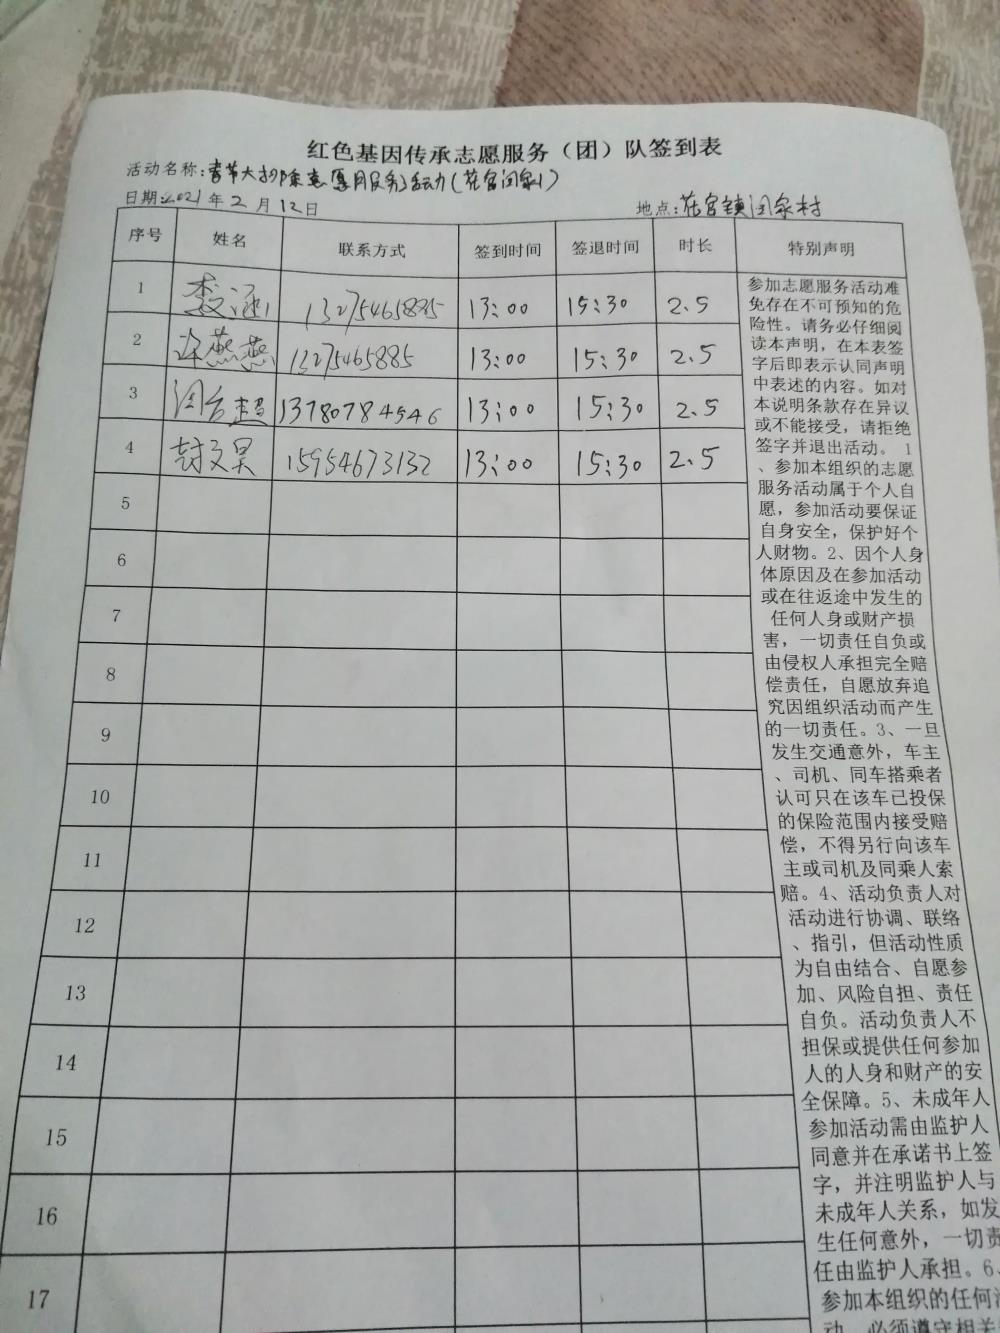 红色基因传承志愿服务（团）队签到表
活动名称:春节大扫除志愿服务活动(花官闫家)
日期:2021年2月12日 地点:花官镇闫家村
序号 姓名 联系方式 签到时间 签退时间 时长 特别声明
1 李涵 13275465885 13:00 15:30 2.5
2 燕燕 13275465885 13:00 15:30 2.5
3 闫 超 13780784546 13:00 15:30 2.5
4 封文昊 15954673132 13:00 15:30 2.5
5
6
7
8
9
10
11
12
13
14
15
16
17
参加志愿服务活动难
免存在不可预知的危
险性。请务必仔细阅
读本声明，在本表签
字后即表示认同声明
中表述的内容。如对
本说明条款存在异议
或不能接受，请拒绝
签字并退出活动。 1
、参加本组织的志愿
服务活动属于个人自
愿，参加活动要保证
自身安全，保护好个
人财物。2、因个人身
体原因及在参加活动
或在往返途中发生的
任何人身或财产损
害，一切责任自负或
由侵权人承担完全赔
偿责任，自愿放弃追
究因组织活动而产生
的一切责任。3、一旦
发生交通意外，车主
、司机、同车搭乘者
认可只在该车已投保
的保险范围内接受赔
偿，不得另行向该车
主或司机及同乘人索
赔。4、活动负责人对
活动进行协调、联络
、指引，但活动性质
为自由结合、自愿参
加、风险自担、责任
自负。活动负责人不
担保或提供任何参加
人的人身和财产的安
全保障。5、未成年人
参加活动需由监护人
同意并在承诺书上签
字，并注明监护人与
未成年人关系，如发
生任何意外，一切责
任由监护人承担。6、
参加本组织的任何活
动，必须遵守相关